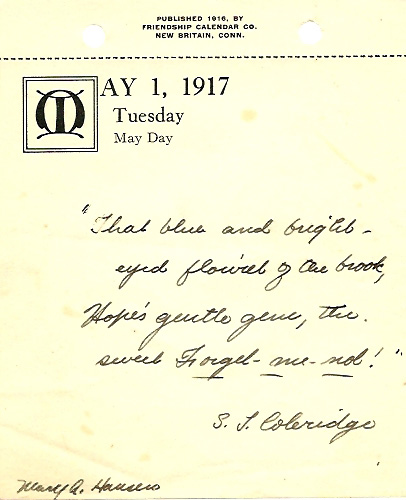 PUBLISHED 1916, BY
FRIENDSHIP CALENDAR CO.
NEW BRITAIN, CONN.
MAY 1, 1917
Tuesday
May Day
"That blue and bright-
eyed flow'ret of the brook,
Hope's gentle gem, the
sweet Forget-me-not!"
S. T. Coleridge
Mary A.